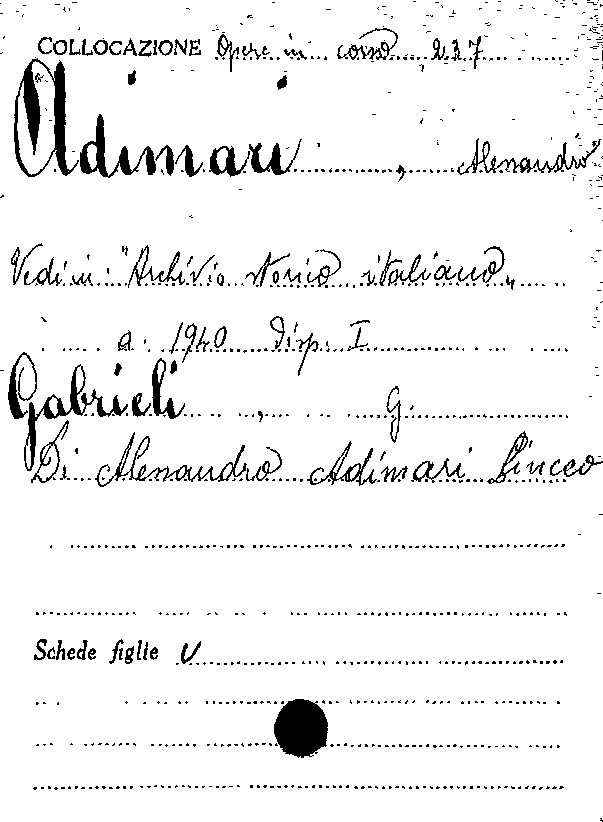 COLLOCAZIONE Opere in corso 237
Adimari , Alessandro
Vedi in: "Archivio storico italiano„
a. 1940 Disp. I
Gabrieli , G.
Di Alessandro Adimari Linceo
Schede figlie V